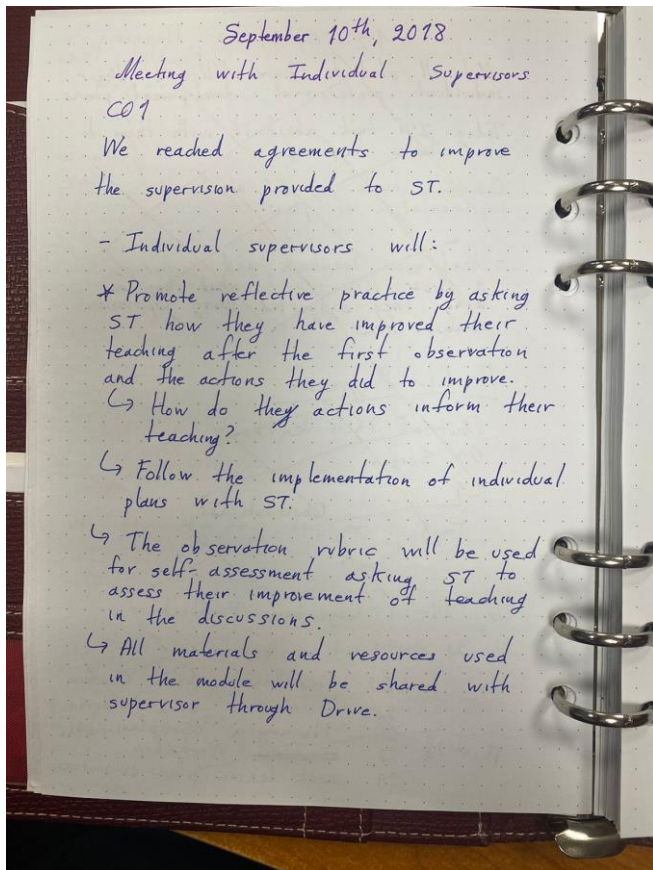 September 10th, 2018
Meeting with Individual Supervisors
CO1
We reached agreements to improve
the supervision provided to ST.
- Individual supervisors will:
* Promote reflective practice by asking
ST how they have improved their
teaching after the first observation
and the actions they did to improve.
↳ How do they actions inform their
teaching?
↳ Follow the implementation of individual
plans with ST.
↳ The observation rubric will be used
for self-assessment asking ST to
assess their improvement of teaching
in the discussions.
↳ All materials and resources used
in the module will be shared with
supervisor through Drive.